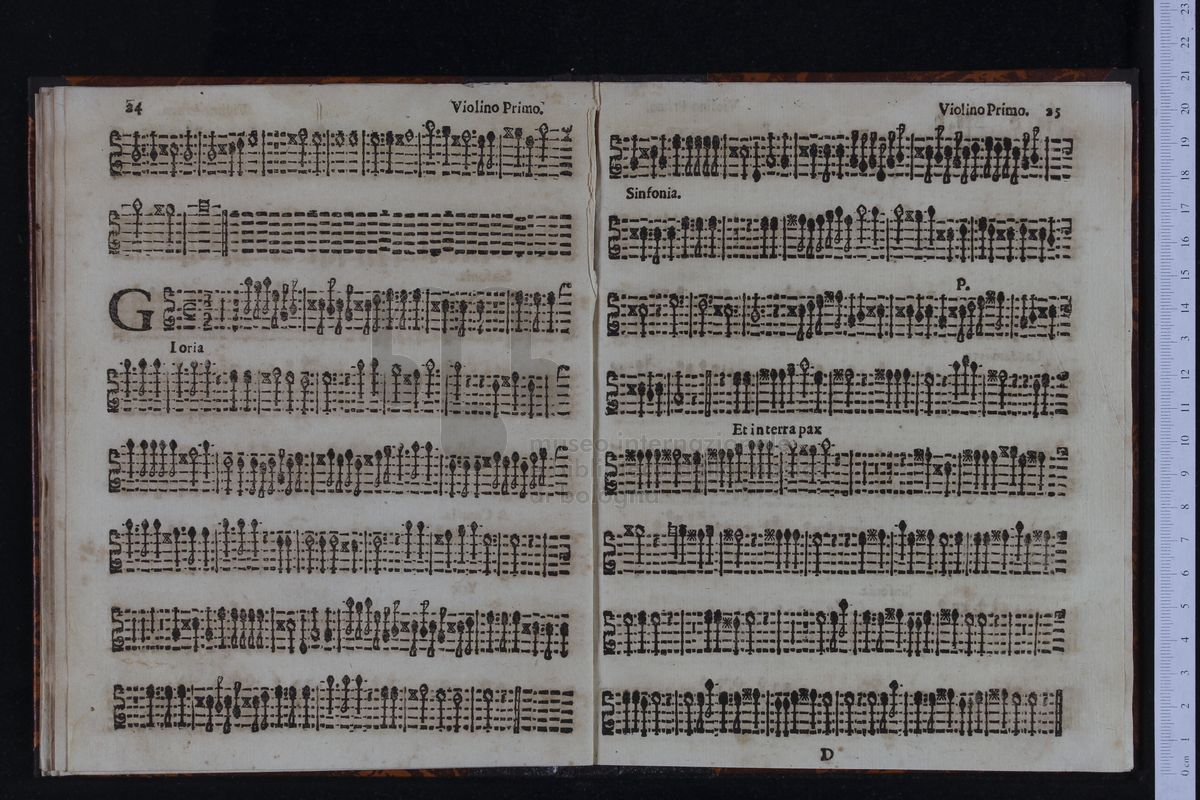 24 Violino Primo.
G
Loria
Violino Primo. 25
Sinfonia.
P.
Et in terra pax
D
museo internazionale
biblioteca
di bologna
0 cm 1 2 3 4 5 6 7 8 9 10 11 12 3 14 15 16 17 18 19 20 21 22 23